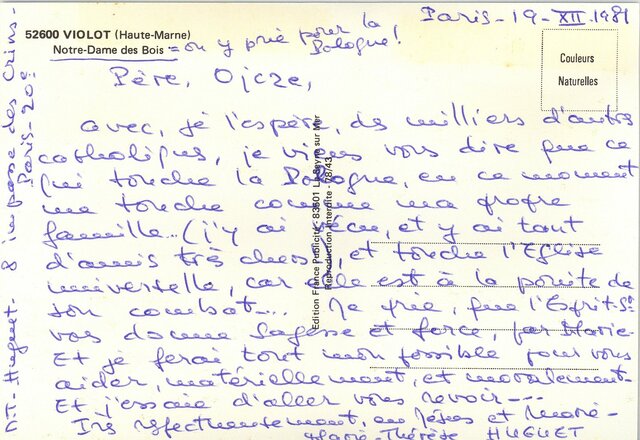 Paris - 19 - XII. 1981
52600 VIOLOT (Haute-Marne)
Notre-Dame des Bois = on y prie pour la
Pologne!
Couleurs
Naturelles
Père, Ojcze,
avec, je l'espère, des milliers d'autres
catholiques, je viens vous dire que ce
qui touche la Pologne, en ce moment
me touche comme ma propre
famille.. (j'y ai vécu, et y ai tant
d'amis très chers), et touche l'Eglise
universelle, car elle est à la pointe de
son combat.... Je prie, que l'Esprit-St
vous donne Sagesse et force, par Marie
Et je ferai tout mon possible pour vous
aider, matériellement, et moralement-
Et j'essaie d'aller vous revoir ---
Très respectueusement, en Jésus et Marie-
Marie-Thérèse HUGUET
M.T. Huguet - 8 impasse des Crins -
Paris-20e
Edition France Publicité - 83501 La Seyne sur Mer
Reproduction Interdite - 78/43